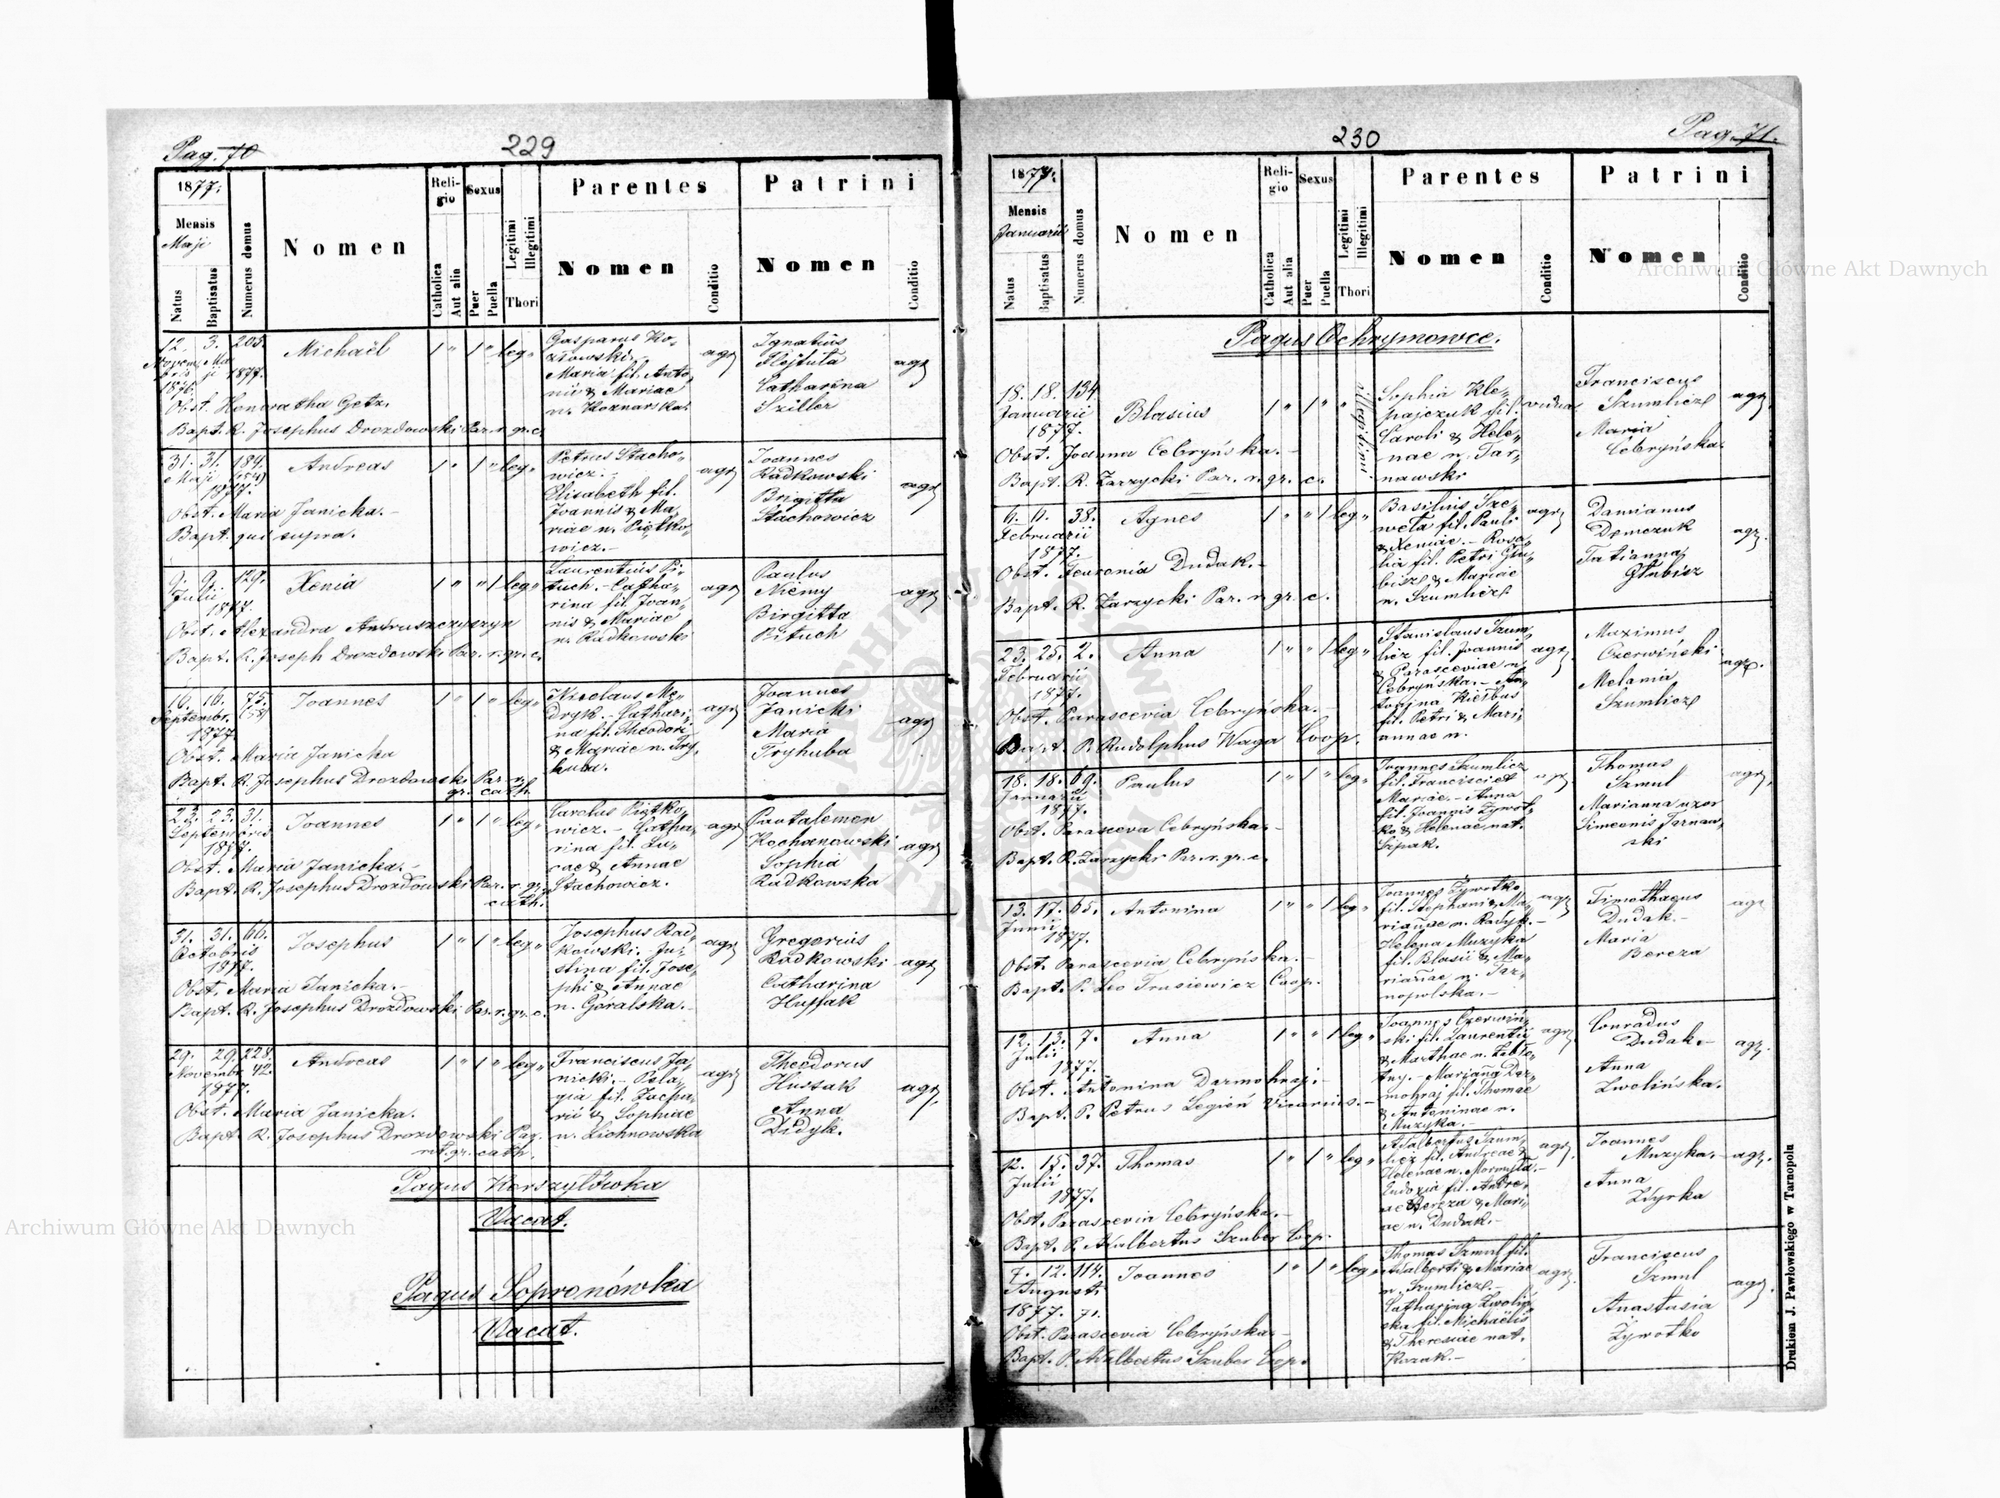 Pag. 70
229
1877.
Mensis
Maji
Natus
Baptisatus
Numerus domus
Nomen
Religio
Catholica
Aut alia
Sexus
Puer
Puella
Legitimi
Illegitimi
Thori
Parentes
Nomen
Conditio
Patrini
Nomen
Conditio
12. 3. 205.
Novem Ma
bris ji 1877.
1876.
Michaël
1 " 1 " leg "
Gasparus Ko-
złowski.-
Maria fil. Anto-
nii & Mariae
n. Koznarska.
agr
Ignatius
Flejtuta
Catharina
Sziller
agr
Obst. Honoratha Getz.
Bapt. R. Josephus Drozdowski Par. r. gr. c.
31. 31. 184.
Maji
1877.
Andreas
1 " 1 " leg "
Petrus Stacho-
wicz.-
Elisabeth fil.
Joannis & Ma-
riae n. Piętko-
wicz.-
agr
Joannes
Radkowski
Brigitta
Stachowicz
agr
Obst. Maria Janicka.-
Bapt. qui supra.
9. 9. 129.
Julii
1877.
Xenia
1 " " 1 leg "
Laurentius Pi-
tuch.- Catha-
rina fil. Joan-
nis & Mariae
n. Radkowski
agr
Paulus
Niemy
Birgitta
Pituch
agr
Obst. Alexandra Andruszczyszyn
Bapt. R. Joseph Drozdowski Par. r. gr. c.
16. 16. 75.
Septembr.
1877.
Joannes
1 " 1 " leg "
Nicolaus Me-
dryk.- Cathari-
na fil. Theodori
& Mariae n. Try-
huba.
agr
Joannes
Janicki
Maria
Tryhuba
agr
Obst. Maria Janicka
Bapt. R. Josephus Drozdowski Par. r.
gr. cath.
23. 23. 31.
Septembris
1877.
Joannes
1 " 1 " leg "
Carolus Piętko-
wicz.- Catha-
rina fil. Lu-
cae & Annae
Stachowicz.
agr
Pantalemon
Kochanowski
Sophia
Radkowska
agr
Obst. Maria Janicka.-
Bapt. R. Josephus Drozdowski Par. r. gr.
cath.
31. 31. 66.
Octobris
1877.
Josephus
1 " 1 " leg "
Josephus Rad-
kowski.- Ju-
stina fil. Jose-
phi & Annae
n. Góralska.-
agr
Gregorius
Radkowski
Catharina
Hussak
agr
Obst. Maria Janicka.-
Bapt. R. Josephus Drozdowski Par. r. gr. c.
29. 29. 228.
Novembr. 42.
1877.
Andreas
1 " 1 " leg "
Franciscus Ja-
nicki.- Pela-
gia fil. Zacha-
rii & Sophiae
n. Lichnowska
agr
Theodorus
Hussak
Anna
Didyk.
agr.
Obst. Maria Janicka.
Bapt. R. Josephus Drozdowski Par.
rit. gr. cath.
Pagus Korszyłówka
Vacat.
Pagus Sopronówka
Vacat.
Pag. 71.
230
1877.
Mensis
Januarii
Natus
Baptisatus
Numerus domus
Nomen
Religio
Catholica
Aut alia
Sexus
Puer
Puella
Legitimi
Illegitimi
Thori
Parentes
Nomen
Conditio
Patrini
Nomen
Conditio
Pagus Ochrymowce.
18. 18. 134.
Januarii
1877.
Blasius
1 " 1 " "
illegitimi
Sophia Kle-
pajczuk fil.
Caroli & Hele-
nae n. Tar-
nawski
vidua
Franciscus
Szumlicz
Maria
Cebryńska.
agr.
Obst. Joanna Cebryńska.-
Bapt. R. Zarzycki Par. r. gr. c.
38.
Februarii
1877.
Agnes
1 " " 1 leg "
Basilius Sze-
weta fil. Pauli
& Xeniae.- Rosa-
lia fil. Petri Głu-
bisz & Mariae
n. Szumlicz
agr
Damianus
Demczuk
Tatianna
Głubisz
agr.
Obst. Feuronia Dudak.-
Bapt. R. Zarzycki Par. r. gr. c.
23. 25. 2.
Februarii
1877.
Anna
1 " " 1 leg "
Stanislaus Szum-
licz fil. Joannis
& Parasceviae n.
Cebryńska.- An-
tonina Kiełbus
fil. Petri & Mari-
annae n.
agr.
Maximus
Czerwiński
Melania
Szumlicz
agr.
Obst. Parascevia Cebryńska.-
Bapt. P. Rudolphus Waga Coop.
18. 18. 69.
Januarii
1877.
Paulus
1 " 1 " leg "
Joannes Szumlicz
fil. Francisci &
Mariae.- Anna
fil. Joannis Żywot-
ko & Helenae nat.
Szpak.
agr.
Thomas
Szmul
Marianna uxor
Simeonis Tarnaw-
ski
agr.
Obst. Parasceva Cebryńska.-
Bapt. R. Zarzycki Par. r. gr. c.
13. 17. 65.
Junii
1877.
Antonina
1 " " 1 leg "
Joannes Żywotko
fil. Stephani & Ma-
riannae n. Radyk.-
Helena Muzyka
fil. Blasii & Ma-
riannae n. Tar-
nopolska.-
agr
Timothaeus
Dudak.-
Maria
Bereza
agr
Obst. Parascevia Cebryńska.-
Bapt. P. Leo Trusiewicz Coop.
12. 13. 7.
Julii
1877.
Anna
1 " " 1 leg "
Joannes Czerwiń-
ski fil. Laurentii
& Marthae n.
Marjanna Dar-
mohraj fil. Thomae
& Antoninae n.
Muzyka.-
agr.
Conradus
Dudak.-
Anna
Zwolińska.
agr.
Obst. Antonina Darmohraj.-
Bapt. P. Petrus Legień Vicarius.-
12. 15. 37.
Julii
1877.
Thomas
1 " 1 " leg "
Adalbertus Szum-
licz fil. Andreae &
Helenae n.
Eudoxia fil. Andre-
ae Bereza & Mari-
ae n. Dudak.-
agr.
Joannes
Muzyka.-
Anna
Żdyrka
agr.
Obst. Parascevia Cebryńska.-
Bapt. P. Adalbertus Szuber Coop.
7. 12. 114.
Augusti
1877. 71.
Joannes
1 " 1 " leg "
Thomas Szmul fil.
Adalberti & Mariae
n. Szumlicz.-
Catharina Zwoliń-
ska fil. Michaëlis
& Theresiae nat.
Kozak.-
agr.
Franciscus
Szmul
Anastasia
Żywotko
agr.
Obst. Parascevia Cebryńska.-
Bapt. P. Adalbertus Szuber Coop.
Drukiem J. Pawłowskiego w Tarnopolu
Archiwum Główne Akt Dawnych
Archiwum Główne Akt Dawnych